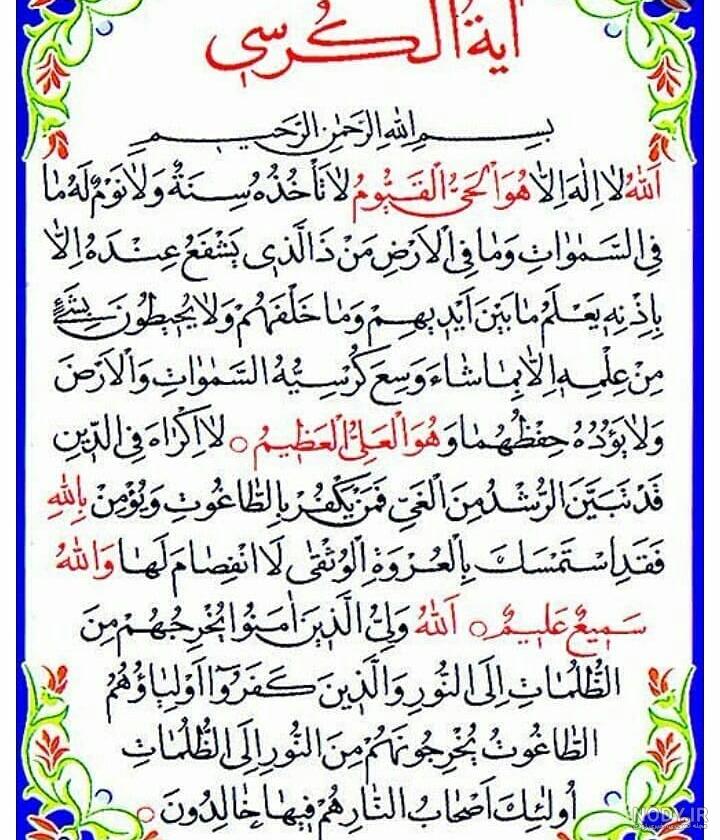 آیة الکرسي
بِسْمِ اللهِ الرَّحْمٰنِ الرَّحیمِ
اَللهُ لا اِلٰهَ اِلّا هُوَ الْحَیُّ الْقَیُّومُ لا تَأْخُذُهُ سِنَةٌ وَلا نَوْمٌ لَهُ ما
فِی السَّمٰوٰاتِ وَما فِی الْاَرْضِ مَنْ ذَا الَّذی یَشْفَعُ عِنْدَهُ اِلّا
بِاِذْنِهِ یَعْلَمُ ما بَیْنَ اَیْدیهِمْ وَما خَلْفَهُمْ وَلا یُحیطُونَ بِشَیْءٍ
مِنْ عِلْمِهِ اِلّا بِما شاءَ وَسِعَ کُرْسِیُّهُ السَّمٰوٰاتِ وَالْاَرْضَ
وَلا یَؤُدُهُ حِفْظُهُما وَهُوَ الْعَلِیُّ الْعَظیمُ ○ لا اِکْراهَ فِی الدّینِ
قَدْ تَبَیَّنَ الرُّشْدُ مِنَ الْغَیِّ فَمَنْ یَکْفُرْ بِالطّاغُوتِ وَیُؤْمِنْ بِاللهِ
فَقَدِ اسْتَمْسَكَ بِالْعُرْوَةِ الْوُثْقٰی لَا انْفِصامَ لَها وَاللهُ
سَمیعٌ عَلیمٌ ○ اَللهُ وَلِیُّ الَّذینَ اٰمَنُوا یُخْرِجُهُمْ مِنَ
الظُّلُمٰاتِ اِلَی النُّورِ وَالَّذینَ کَفَرُوا اَوْلِیٰاؤُهُمُ
الطّاغُوتُ یُخْرِجُونَهُمْ مِنَ النُّورِ اِلَی الظُّلُمٰاتِ
اُولٰئِكَ اَصْحٰابُ النّارِ هُمْ فیها خٰالِدُونَ ○
NODY.IR